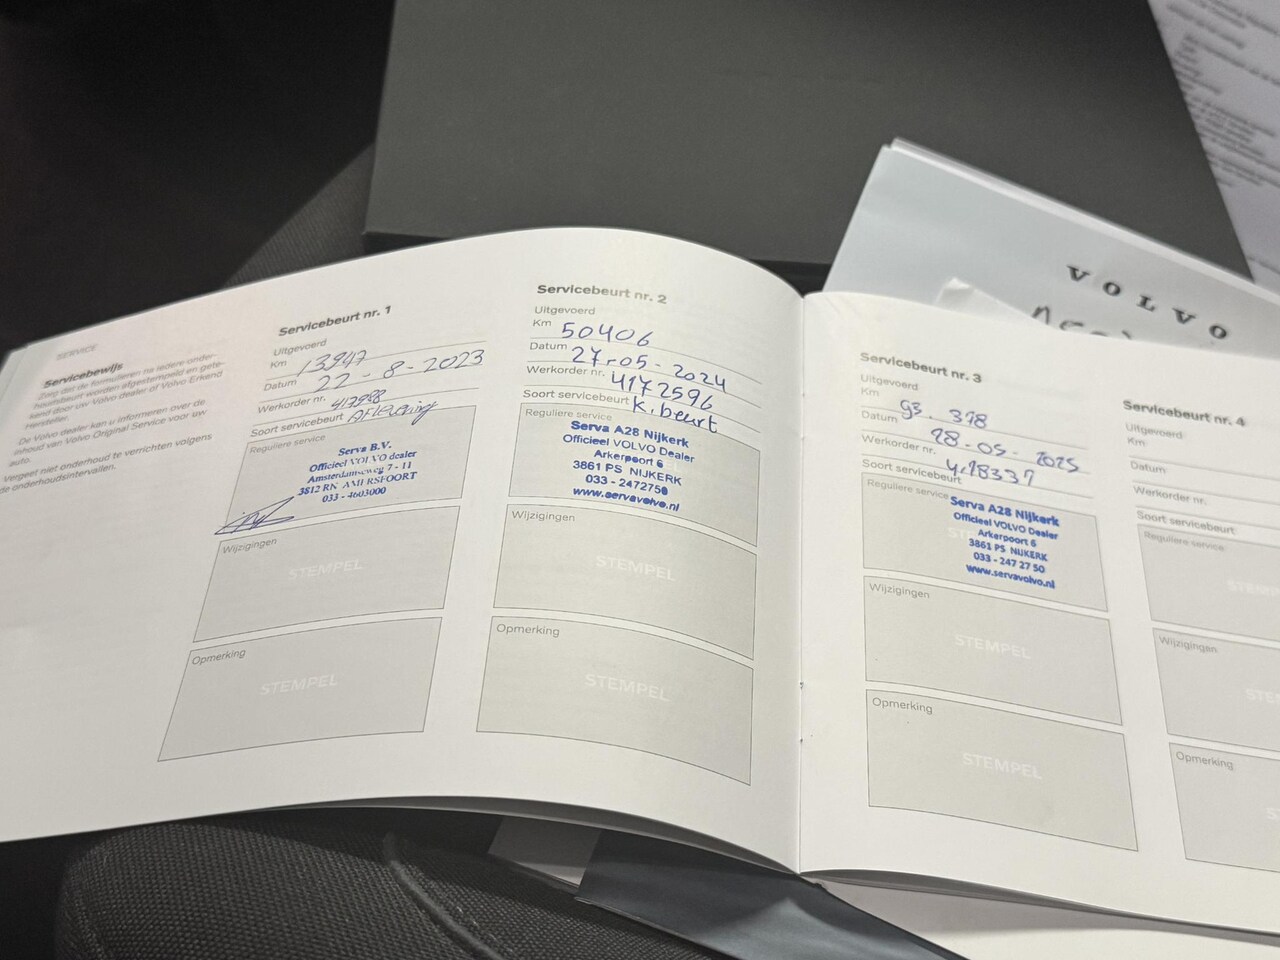 SERVICE
Servicebewijs
Zorg dat de formulieren na iedere onder-
houdsbeurt worden afgestempeld en gete-
kend door uw Volvo dealer of Volvo Erkend
Hersteller.
De Volvo dealer kan u informeren over de
inhoud van Volvo Original Service voor uw
auto.
Vergeet niet onderhoud te verrichten volgens
de onderhoudsintervallen.
Servicebeurt nr. 1
Uitgevoerd
Km 13947
Datum 22-8-2023
Werkorder nr.
Soort servicebeurt Aflevering
Reguliere service
Serva B.V.
Officieel VOLVO dealer
Amsterdamseweg 7 - 11
3812 RN AMERSFOORT
033 - 4603000
Wijzigingen
STEMPEL
Opmerking
STEMPEL
Servicebeurt nr. 2
Uitgevoerd
Km 50406
Datum 27-05-2024
Werkorder nr. 4172596
Soort servicebeurt K.beurt
Reguliere service
Serva A28 Nijkerk
Officieel VOLVO Dealer
Arkerpoort 6
3861 PS NIJKERK
033 - 2472750
www.servavolvo.nl
Wijzigingen
STEMPEL
Opmerking
STEMPEL
Servicebeurt nr. 3
Uitgevoerd
Km
Datum 28-05-2025
Werkorder nr.
Soort servicebeurt
Reguliere service
Serva A28 Nijkerk
Officieel VOLVO Dealer
Arkerpoort 6
3861 PS NIJKERK
033 - 247 27 50
www.servavolvo.nl
Wijzigingen
STEMPEL
Opmerking
STEMPEL
Servicebeurt nr. 4
Uitgevoerd
Km
Datum
Werkorder nr.
Soort servicebeurt
Reguliere service
Wijzigingen
Opmerking
VOLVO